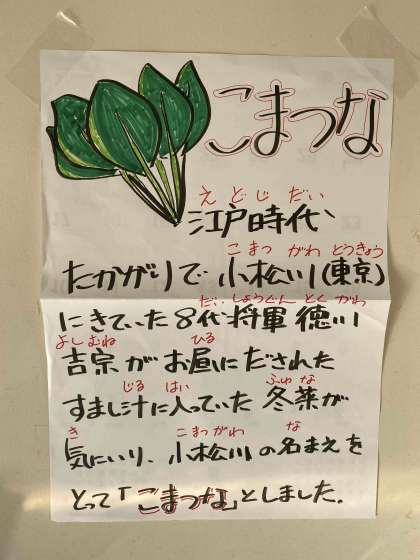 こまつな
えどじだい
江戸時代、
こまつがわ とうきょう
たかがりで 小松川(東京)
だい しょうぐん とくがわ
にきていた8代将軍 徳川
よしむね ひる
吉宗がお昼にだされた
じる はい ふゆな
すまし汁に入っていた冬菜が
き こまつがわ な
気にいり、小松川の名まえを
とって「こまつな」としました。